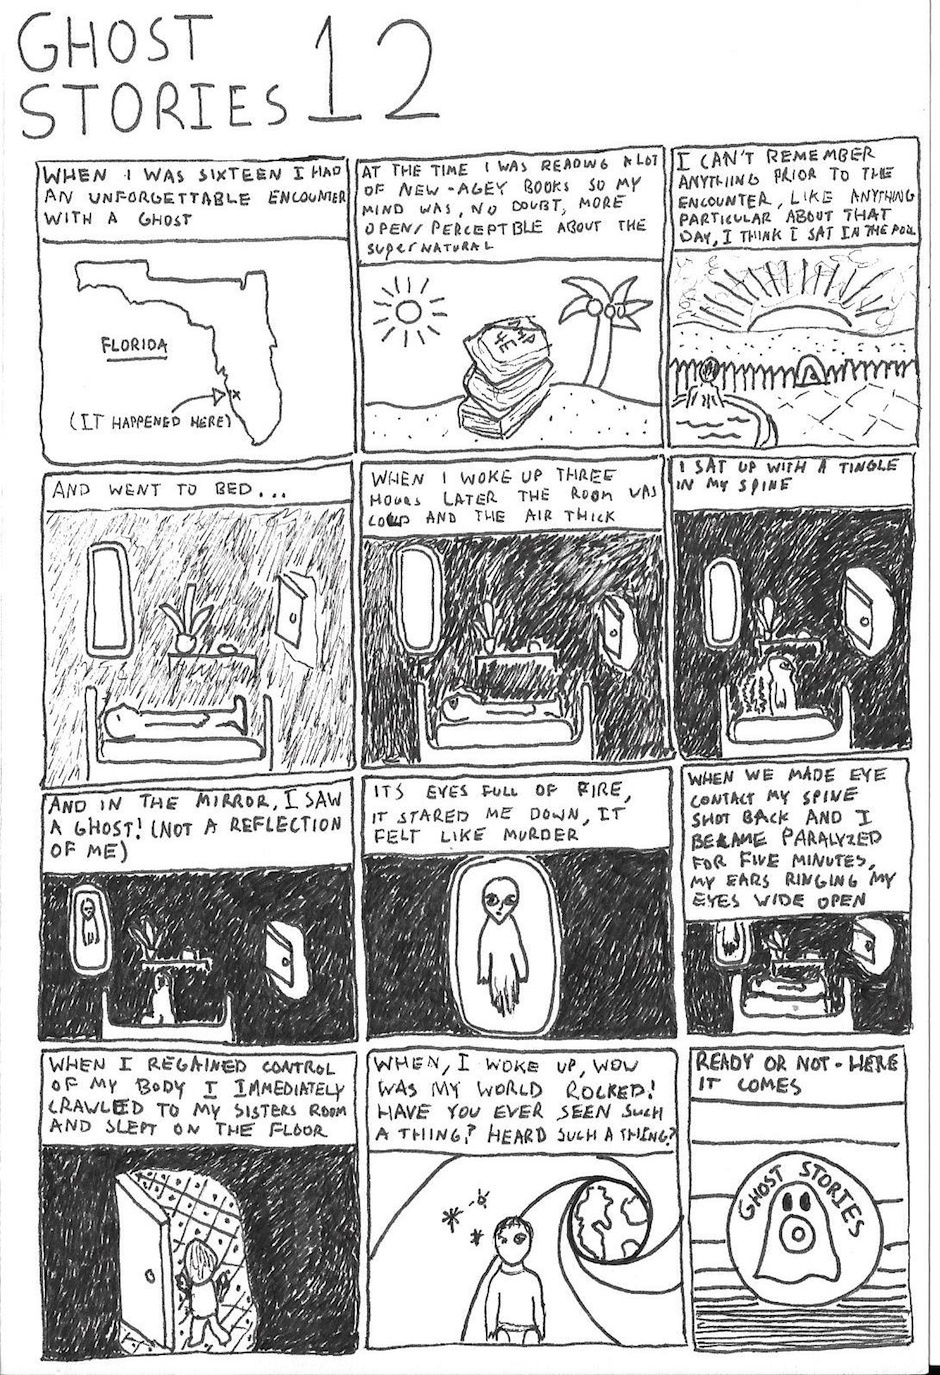 GHOST
STORIES 12
WHEN I WAS SIXTEEN I HAD
AN UNFORGETTABLE ENCOUNTER
WITH A GHOST
FLORIDA
(IT HAPPENED HERE)
AT THE TIME I WAS READING A LOT
OF NEW-AGEY BOOKS SO MY
MIND WAS, NO DOUBT, MORE
OPEN/PERCEPTIBLE ABOUT THE
SUPERNATURAL
I CAN'T REMEMBER
ANYTHING PRIOR TO THE
ENCOUNTER, LIKE ANYTHING
PARTICULAR ABOUT THAT
DAY, I THINK I SAT IN THE POOL
AND WENT TO BED...
WHEN I WOKE UP THREE
HOURS LATER THE ROOM WAS
COLD AND THE AIR THICK
I SAT UP WITH A TINGLE
IN MY SPINE
AND IN THE MIRROR, I SAW
A GHOST! (NOT A REFLECTION
OF ME)
ITS EYES FULL OF FIRE,
IT STARED ME DOWN, IT
FELT LIKE MURDER
WHEN WE MADE EYE
CONTACT MY SPINE
SHOT BACK AND I
BECAME PARALYZED
FOR FIVE MINUTES,
MY EARS RINGING MY
EYES WIDE OPEN
WHEN I REGAINED CONTROL
OF MY BODY I IMMEDIATELY
CRAWLED TO MY SISTERS ROOM
AND SLEPT ON THE FLOOR
WHEN, I WOKE UP, WOW
WAS MY WORLD ROCKED!
HAVE YOU EVER SEEN SUCH
A THING? HEARD SUCH A THING?
READY OR NOT - HERE
IT COMES
GHOST STORIES